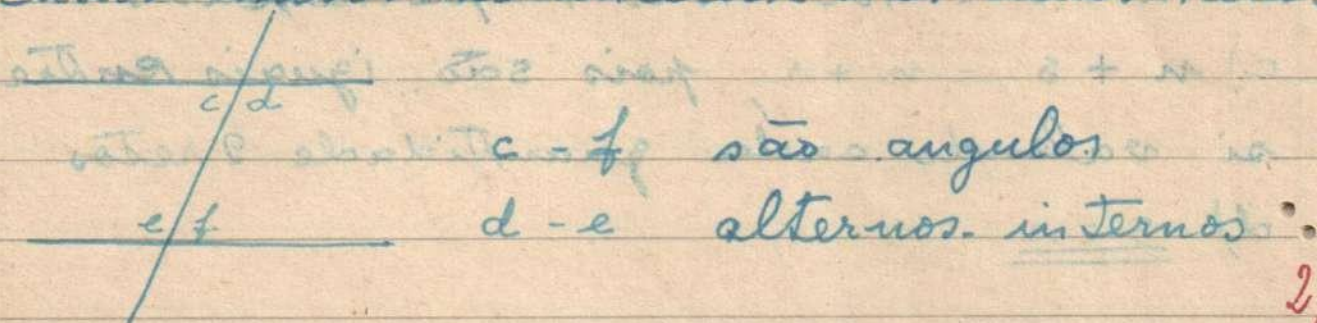 c d
c - f são angulos
e f
d - e alternos. internos
2